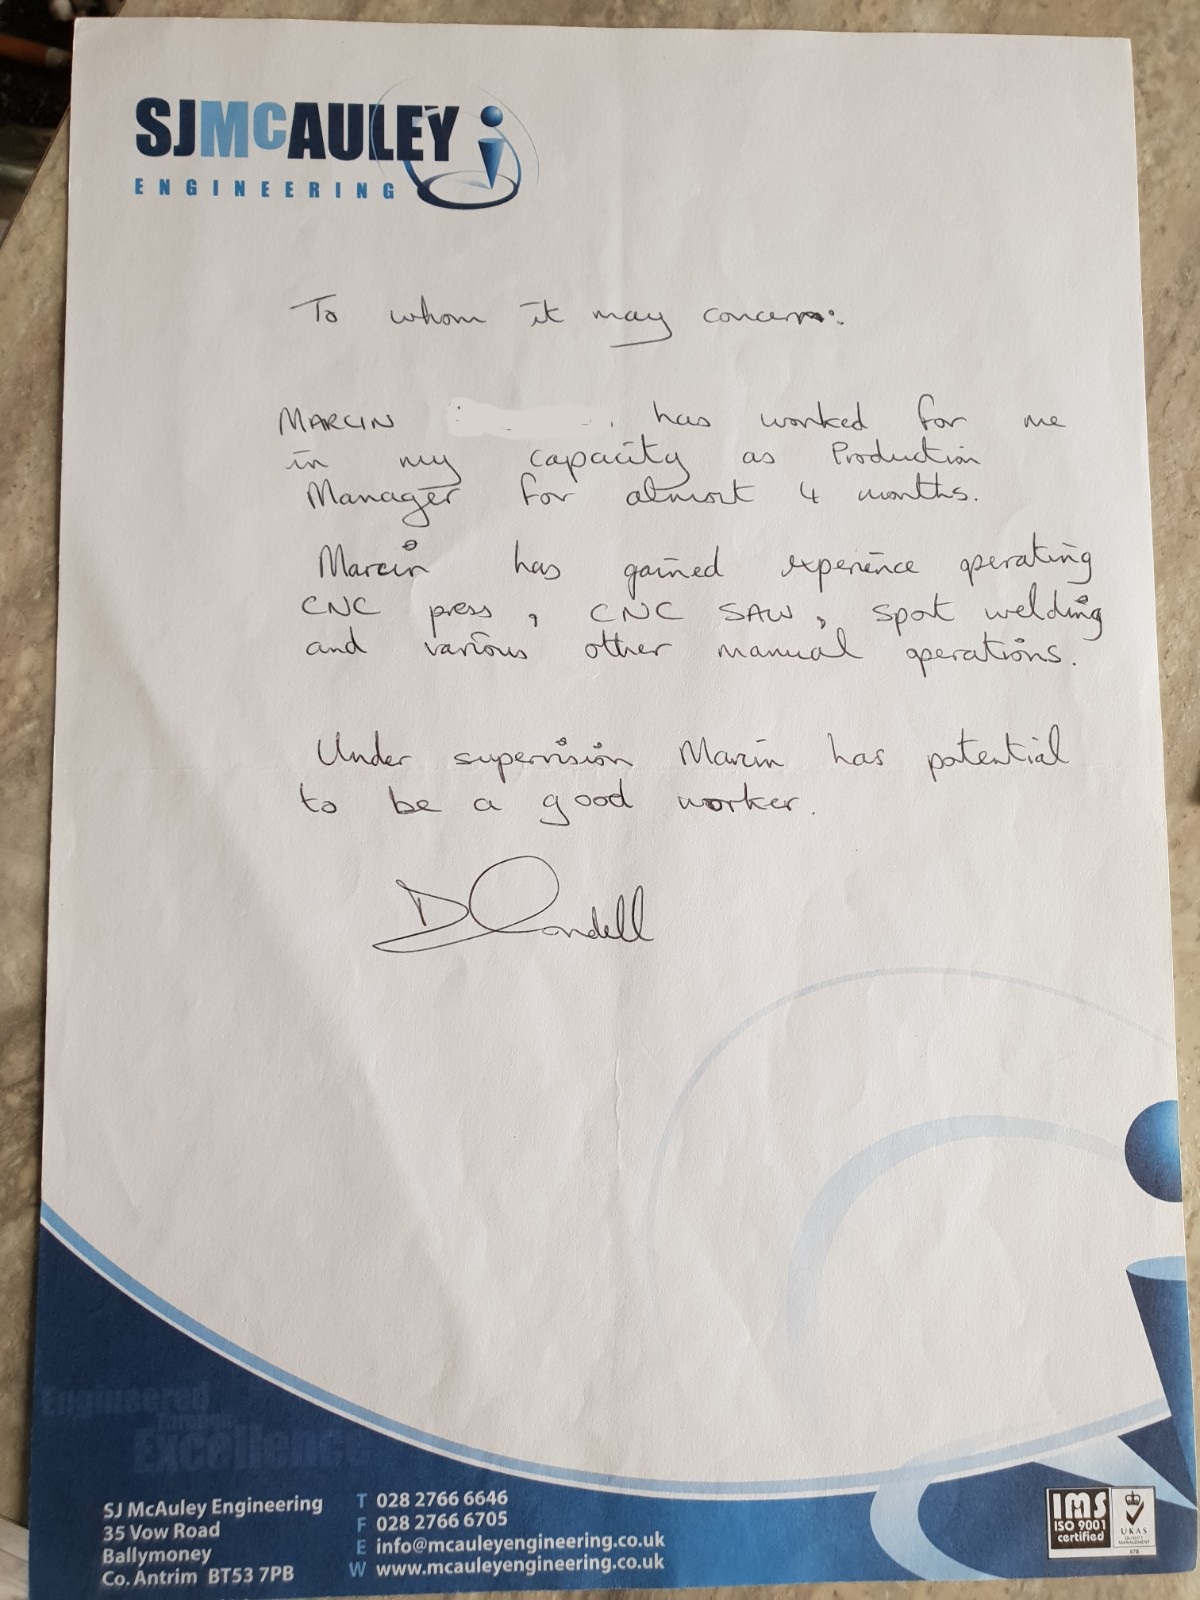 SJMCAULEY
ENGINEERING
To whom it may concern:
MARCIN has worked for me
in my capacity as Production
Manager for almost 4 months.
Marcin has gained experience operating
CNC press, CNC SAW, spot welding
and various other manual operations.
Under supervision Marcin has potential
to be a good worker.
Engineered
Through
Excellence
SJ McAuley Engineering
35 Vow Road
Ballymoney
Co. Antrim BT53 7PB
T 028 2766 6646
F 028 2766 6705
E info@mcauleyengineering.co.uk
W www.mcauleyengineering.co.uk
IMS
ISO 9001
certified
UKAS
QUALITY
MANAGEMENT